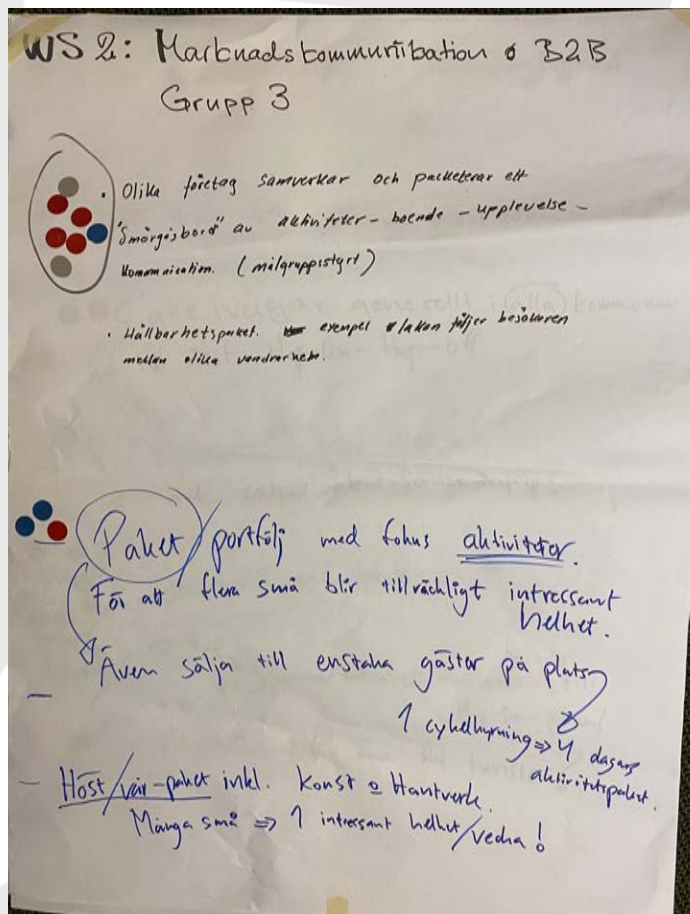 WS 2: Marknadskommunikation o B2B
Grupp 3
• Olika företag samverkar och packeterar ett
"Smörgåsbord" av aktiviteter – boende – upplevelse –
kommunication. (målgruppsstyrt)
• Hållbarhetspaket. exempel lakan följer besökaren
mellan olika vandrarhem.
Paket/portfölj med fokus aktiviteter.
För att flera små blir tillräckligt intressant
helhet.
Även sälja till enstaka gäster på plats
1 cykelhyrning => 4 dagars
aktivitetspaket.
– Höst/vår-paket inkl. Konst o Hantverk.
Många små => 1 intressant helhet/vecka!